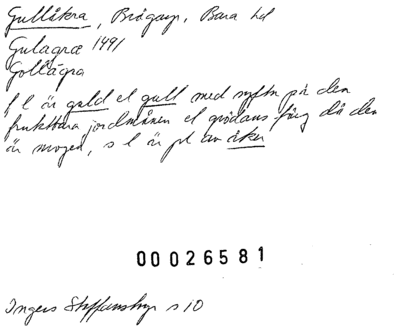 Gullåkra, Brågarp, Bara hd
Gulagræ 1491
Gollagra
f l är guld el gull med syftn på den
fruktbara jordmånen el grödans färg då den
är mogen, s l är pl av åker
00026581
Ingers Staffanstorp s 10